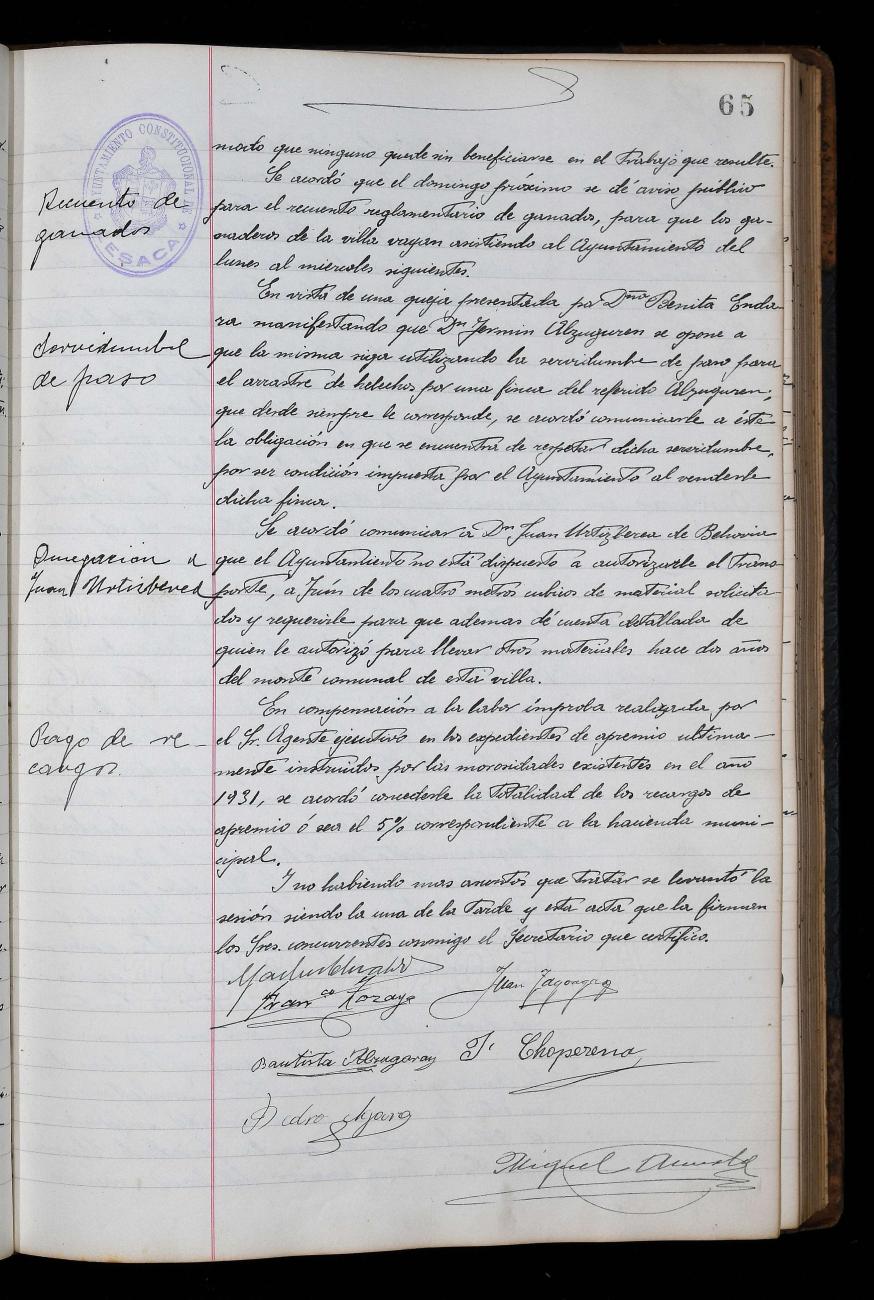 65
AYUNTAMIENTO CONSTITUCIONAL DE
LESACA
modo que ninguno quede sin beneficiarse en el trabajo que resulte.
Recuento de
ganados
Se acordó que el domingo próximo se dé aviso público
para el recuento reglamentario de ganados, para que los ga-
naderos de la villa vayan asistiendo al Ayuntamiento del
lunes al miercoles siguientes.
Servidumbre
de paso
En vista de una queja presentada por Dña Benita Enda-
ra manifestando que Dn Fermin Alzuguren se opone a
que la misma siga utilizando la servidumbre de paso para
el arrastre de helechos por una finca del referido Alzuguren,
que desde siempre le corresponde, se acordó comunicarle a éste
la obligación en que se encuentra de respetar dicha servidumbre,
por ser condición impuesta por el Ayuntamiento al venderle
dicha finca.
Denegación a
Juan Urtizberea
Se acordó comunicar a Dn Juan Urtizberea de Behovia
que el Ayuntamiento no está dispuesto a autorizarle el trans
porte, a Irún de los cuatro metros cubicos de material solicita
dos y requerirle para que ademas dé cuenta detallada de
quien le autorizó para llevar otros materiales hace dos años
del monte comunal de esta villa.
Pago de re-
cargos.
En compensación a la labor ímproba realizada por
el Sr. Agente ejecutivo en los expedientes de apremio ultima-
mente instruidos por las morosidades existentes en el año
1931, se acordó concederle la totalidad de los recargos de
apremio ó sea el 5% correspondiente a la hacienda muni-
cipal.
Y no habiendo mas asuntos que tratar se levantó la
sesión siendo la una de la tarde y esta acta que la firman
los Sres. concurrentes conmigo el Secretario que certifico.
Franco Zozaya
Juan
Bautista Alzugaray
F. Choperena
Pedro
Miguel